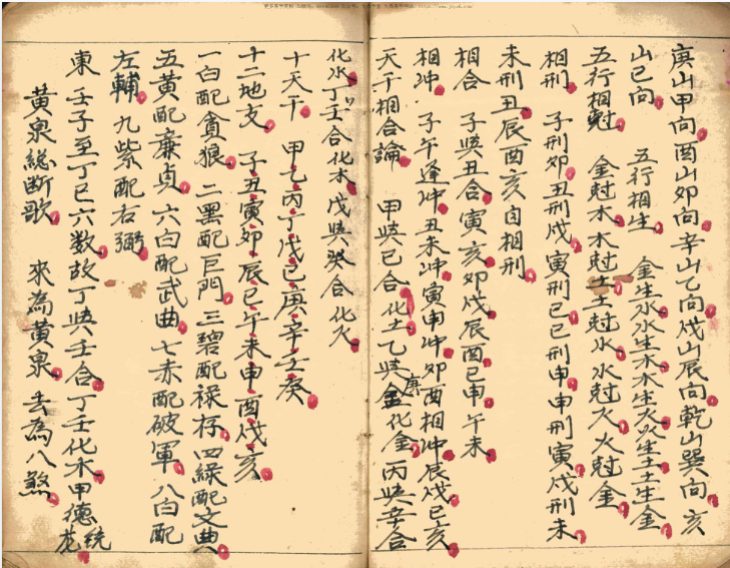 庚山甲向酉山卯向辛山乙向戌山辰向乾山巽向亥
山巳向 五行相生 金生水水生木木生火火生土土生金
五行相尅 金尅木木尅土土尅水水尅火火尅金
相刑 子刑卯丑刑戌寅刑巳巳刑申申刑寅戌刑未
未刑丑辰酉亥自相刑
相合 子與丑合寅亥卯戌辰酉巳申午未
相冲 子午逢冲丑未冲寅申冲卯酉相冲辰戌巳亥
天干相合論 甲與已合化土乙與庚金化金丙與辛合
化水丁壬合化木戊與癸合化火
十天干 甲乙丙丁戊己庚辛壬癸
十二地支 子丑寅卯辰巳午未申酉戌亥
一白配貪狼 二黑配巨門三碧配祿存四綠配文曲
五黃配廉貞六白配武曲七赤配破軍八白配
左輔 九紫配右弼
東 壬子至丁巳六數故丁與壬合丁壬化木甲德統
黃泉總断歌 來為黃泉 去為八煞